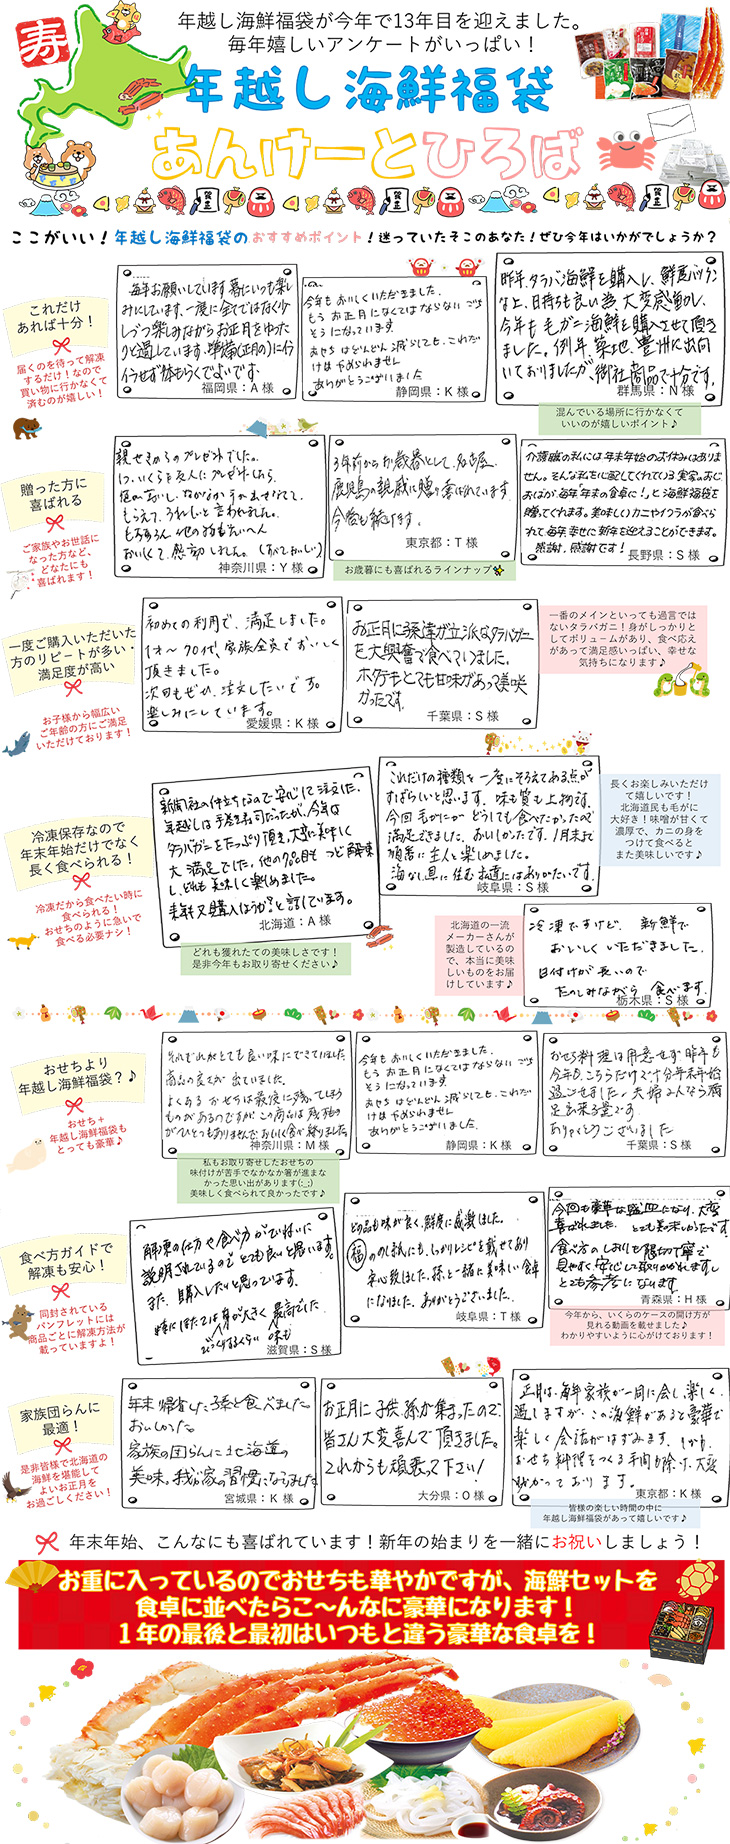 寿
年越し海鮮福袋が今年で13年目を迎えました。
毎年嬉しいアンケートがいっぱい！
年越し海鮮福袋
あんけーとひろば
ここがいい！年越し海鮮福袋のおすすめポイント！迷っていたそこのあなた！ぜひ今年はいかがでしょうか？
これだけ
あれば十分！
届くのを待って解凍
するだけ！なので
買い物に行かなくて
済むのが嬉しい！
毎年お願いしています。暮にいつも楽し
みにしています。一度に全てではなく少
しづつ楽しみながらお正月をゆった
りと過しています。準備(正月の)にイ
ライラせず体もらくでよいです。
福岡県：A 様
今年もおいしくいただきました。
もうお正月になくてはならないごち
そうになっています。
おせちはどんどん減らしても、これだ
けはやめられません
ありがとうございました
静岡県：K 様
昨年、タラバ海鮮を購入し、鮮度バツグン
な上、日持ちも良い為、大変感動し、
今年も毛ガニ海鮮を購入させて頂き
ました。例年、築地、豊州に出向
いておりましたが、御社商品で十分です。
群馬県：N 様
混んでいる場所に行かなくて
いいのが嬉しいポイント♪
贈った方に
喜ばれる
ご家族やお世話に
なった方など、
どなたにも
喜ばれます！
親せきからのプレゼントでした。
神奈川県：Y 様
3年前からお歳暮として、名古屋、
鹿児島の親戚に贈り喜ばれています。
今後も続けます。
東京都：T 様
お歳暮にも喜ばれるラインナップ
介護職の私には年末年始のお休みはありま
せん。そんな私を心配してくれている実家のおじ
おばが、毎年「年末の食卓に！」と海鮮福袋を
贈ってくれます。美味しいカニやイクラが食べら
れて毎年、幸せに新年を迎えることができます。
感謝、感謝です！
長野県：S 様
一度ご購入いただいた
方のリピートが多い・
満足度が高い
お子様から幅広い
ご年齢の方にご満足
いただけております！
初めての利用で、満足しました。
1才～70代、家族全員でおいしく
頂きました。
次回もぜひ、注文したいです。
楽しみにしています。
愛媛県：K 様
お正月に孫達が立派なタラバガニ
を大興奮で食べていました。
ホタテもとても甘味があって美味し
かったです。
千葉県：S 様
一番のメインといっても過言では
ないタラバガニ！身がしっかりと
してボリュームがあり、食べ応え
があって満足感いっぱい、幸せな
気持ちになります♪
冷凍保存なので
年末年始だけでなく
長く食べられる！
冷凍だから食べたい時に
食べられる！
おせちのように急いで
食べる必要ナシ！
新聞社の仕立ちなので安心して注文した。
年越しは手巻き寿司だったが、今年は
タラバガニをたっぷり頂き、大変美味しく
大満足でした。他の7品目もつど解凍
し、どれも美味しく楽しめました。
来年又購入しようか？と話しています。
北海道：A 様
どれも獲れたての美味しさです！
是非今年もお取り寄せください♪
これだけの種類を一度にそろえてある点が
すばらしいと思います。味も質も上物です。
今回毛ガニがどうしても食べたかったので
満足できました。おいしかったです。1月末まで
順番に主人と楽しめました。
海なし県に住むお達にはありがたいです。
岐阜県：S 様
長くお楽しみいただけ
て嬉しいです！
北海道民も毛がに
大好き！味噌が甘くて
濃厚で、カニの身を
つけて食べると
また美味しいです♪
北海道の一流
メーカーさんが
製造しているの
で、本当に美味
しいものをお届
けしています♪
冷凍ですけど、新鮮で
おいしくいただきました。
日付けが長いので
たのしみながら食べます。
栃木県：S 様
おせちより
年越し海鮮福袋？♪
おせち＋
年越し海鮮福袋も
とっても豪華♪
それぞれがとても良い味にできていました
商品の良さが出ていました。
よくあるおせちは最後に残ってしまう
ものがあるのですが、この商品は残り物
がひとつもありませんでおいしく食べ終りました
神奈川県：M 様
私もお取り寄せしたおせちの
味付けが苦手でなかなか箸が進まな
かった思い出があります(;_;)
美味しく食べられて良かったです♪
今年もおいしくいただきました。
もうお正月になくてはならないごち
そうになっています
おせちはどんどん減らしても、これだ
けはやめられません
ありがとうございました
静岡県：K 様
おせち料理は用意せず昨年も
今年も、こちらだけで十分年末年始
過ごせました。夫婦2人なら満
足出来る量です。
ありがとうございました
千葉県：S 様
食べ方ガイドで
解凍も安心！
同封されている
パンフレットには
商品ごとに解凍方法が
載っていますよ！
解凍の仕方や食べ方がていねいに
説明されているのでとても良いと思います。
また、購入したいと思っています。
特にほたては身が大きく最高でした
びっくりするくらい 味も
滋賀県：S 様
どの品も味が良く、鮮度に感激しました。
福ののし紙にも、しっかりレシピを載せてあり
安心致しました。孫と一緒に美味しい食卓
になりました。ありがとうございました。
岐阜県：T 様
今回も豪華な盛皿になり、大変
喜ばれました。とても美味かったです。
食べ方のしおりも親切丁寧で
見やすく安心して取りかかれますし
とても参考になります。
青森県：H 様
今年から、いくらのケースの開け方が
見れる動画を載せました♪
わかりやすいように心がけております！
家族団らんに
最適！
是非皆様で北海道の
海鮮を堪能して
よいお正月を
お過ごしください！
年末帰省した孫と食べました。
おいしかった。
家族の団らんに北海道の
美味。我が家の習慣になりました
宮城県：K 様
お正月に子供、孫が集まったので
皆さん大変喜んで頂きました。
これからも頑張って下さい！
大分県：O 様
正月は、毎年家族が一同に会し、楽しく
過しますが、この海鮮があると豪華で
楽しく会話がはずみます。しかも、
おせち料理をつくる手間も除け、大変
助かっております。
東京都：K 様
皆様の楽しい時間の中に
年越し海鮮福袋があって嬉しいです♪
年末年始、こんなにも喜ばれています！新年の始まりを一緒にお祝いしましょう！
お重に入っているのでおせちも華やかですが、海鮮セットを
食卓に並べたらこ～んなに豪華になります！
１年の最後と最初はいつもと違う豪華な食卓を！